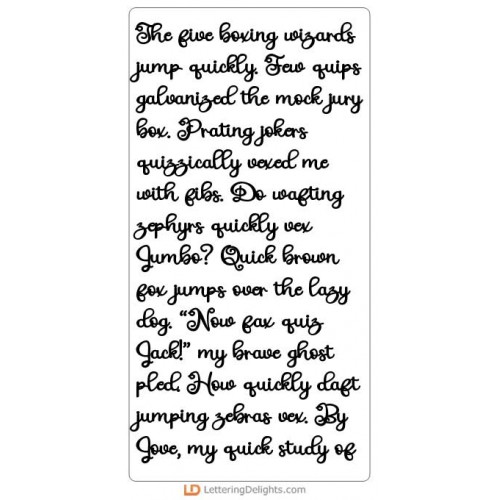 The five boxing wizards
jump quickly. Few quips
galvanized the mock jury
box. Prating jokers
quizzically vexed me
with fibs. Do wafting
zephyrs quickly vex
Jumbo? Quick brown
fox jumps over the lazy
dog. “Now fax quiz
Jack!” my brave ghost
pled. How quickly daft
jumping zebras vex. By
Jove, my quick study of
LD LetteringDelights.com